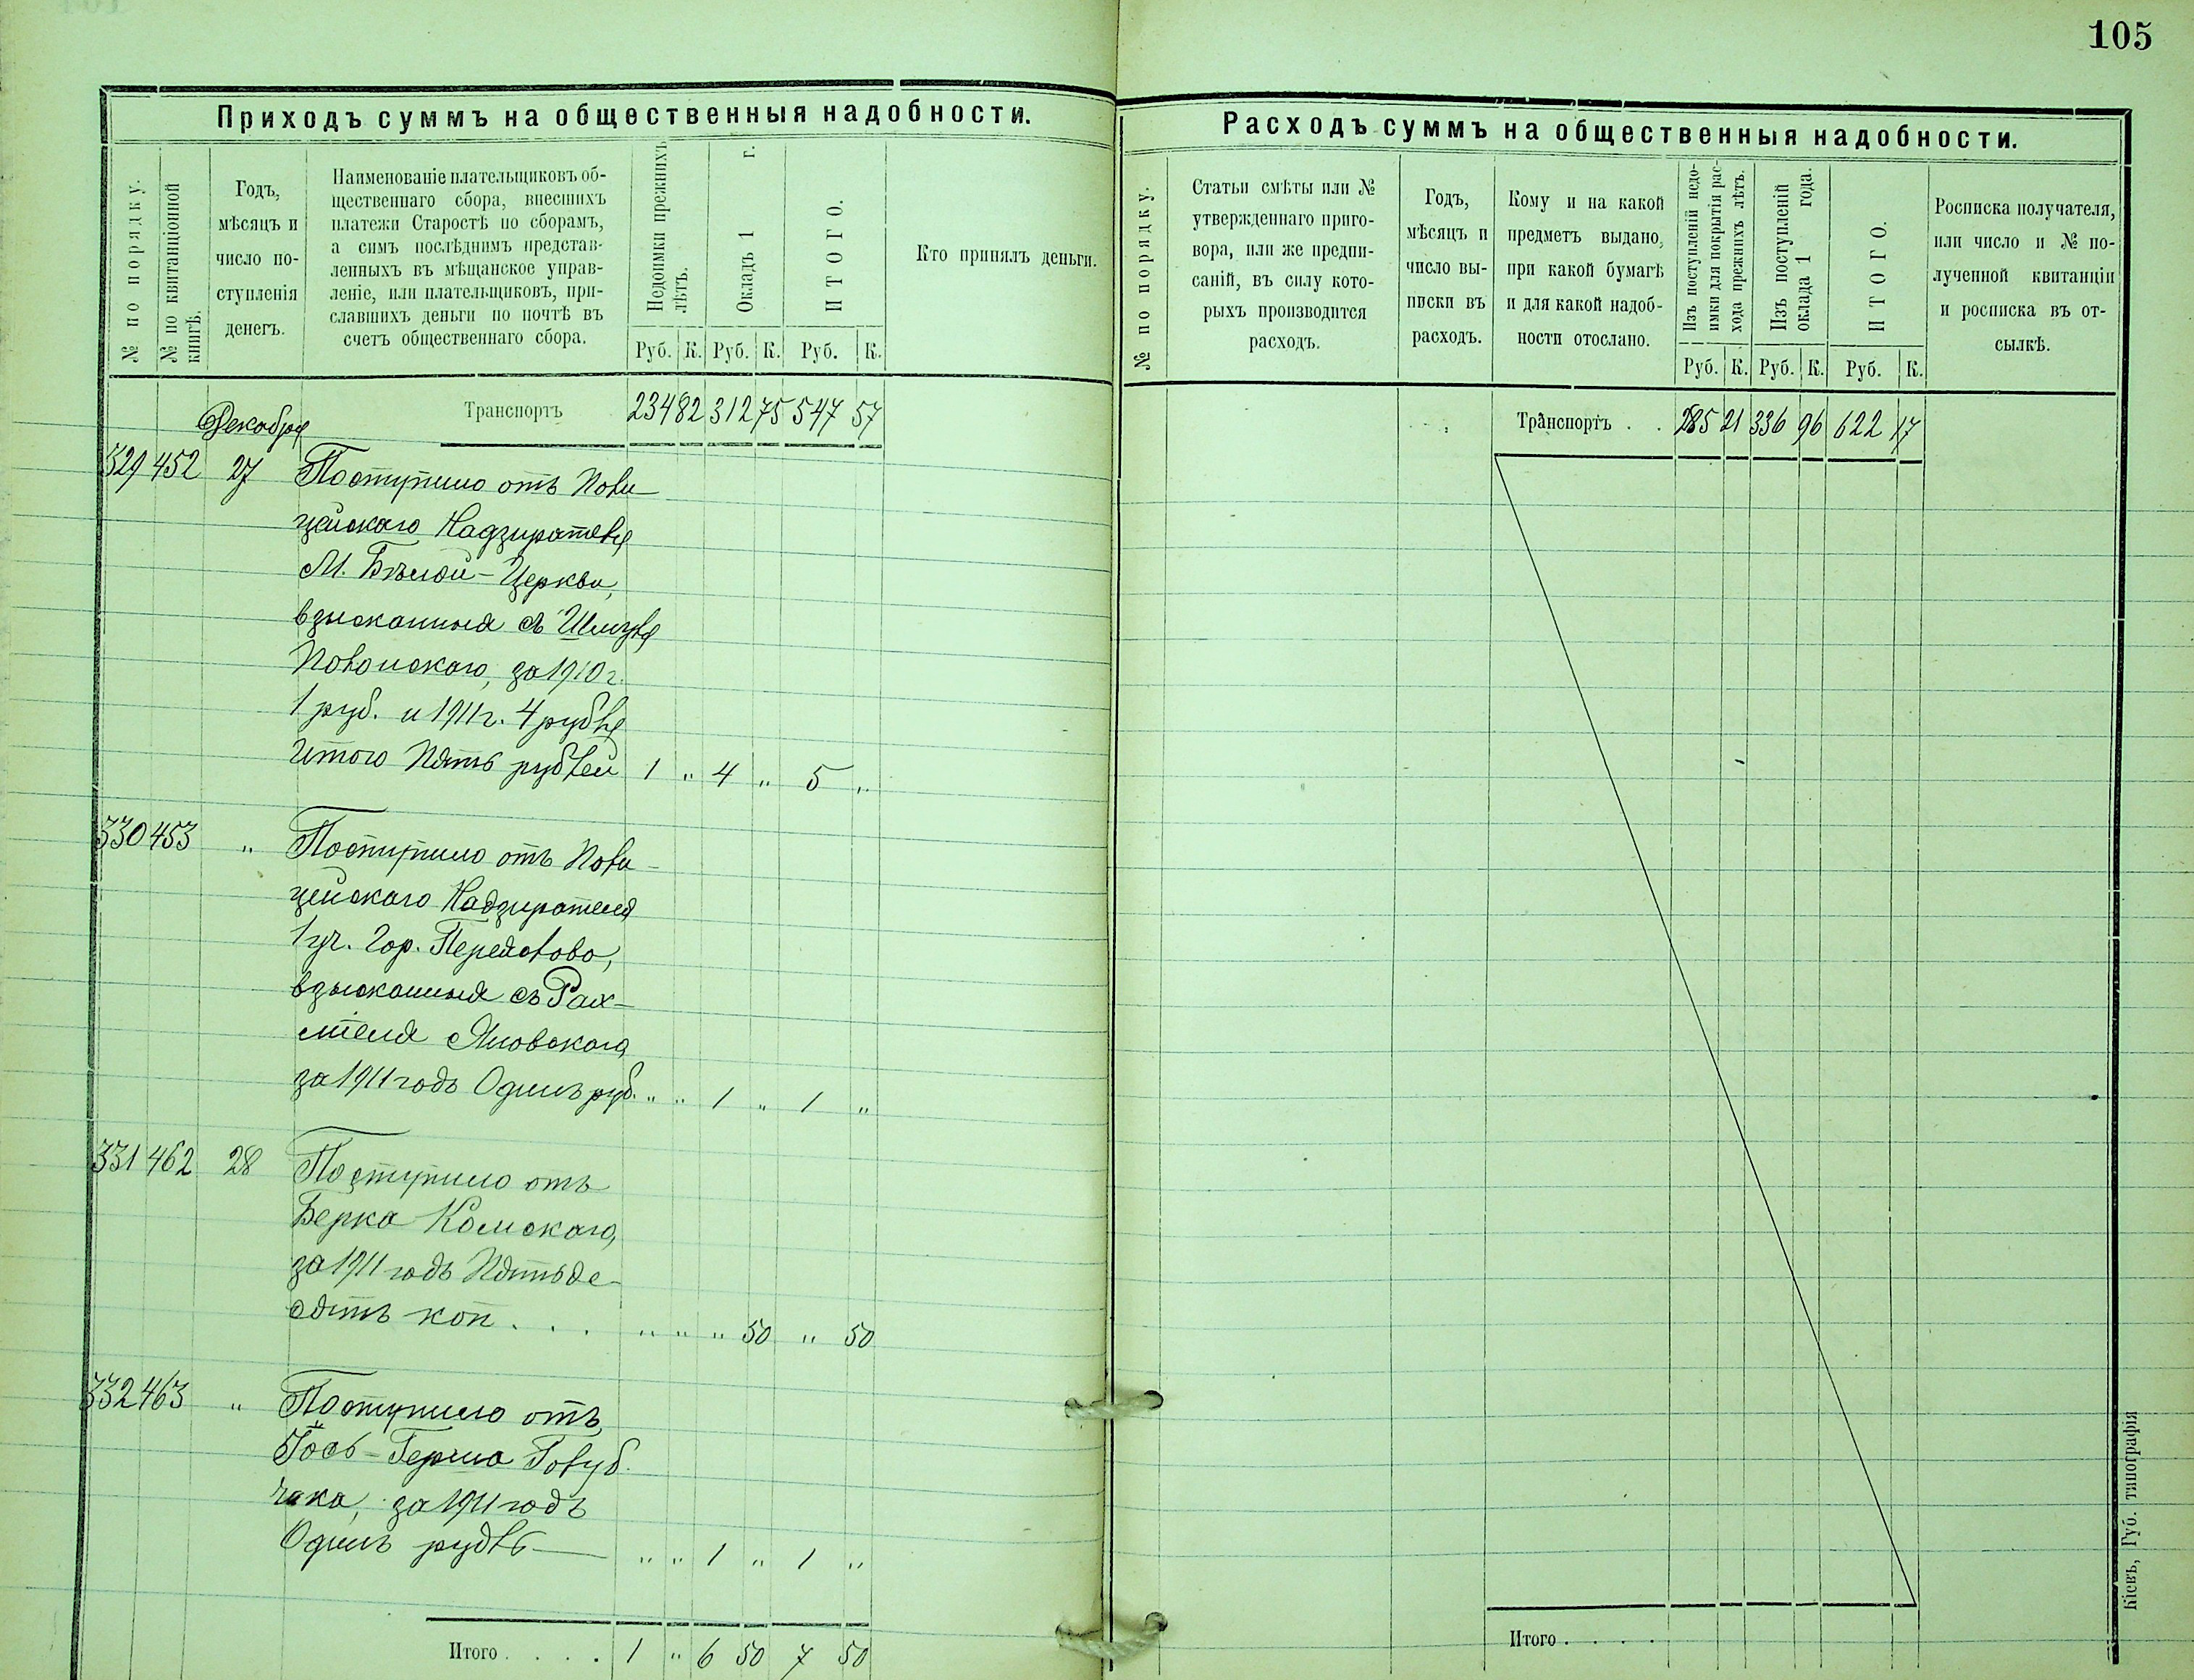 105
Приходъ суммъ на общественныя надобности.
№ по порядку.
№ по квитанціонной книгѣ.
Годъ,
мѣсяцъ и
число по-
ступленія
денегъ.
Наименованіе плательщиковъ об-
щественнаго сбора, внесшихъ
платежи Старостѣ по сборамъ,
а симъ послѣднимъ представ-
ленныхъ въ мѣщанское управ-
леніе, или плательщиковъ, при-
славшихъ деньги по почтѣ въ
счетъ общественнаго сбора.
Недоимки прежнихъ
лѣтъ.
Окладъ 1 г.
ИТОГО.
Руб. К. Руб. К. Руб. К.
Кто принялъ деньги.
Транспортъ 234 82 312 75 547 57
Декабря
329 452 27 Поступило отъ Поли-
цейскаго Надзирателя
М. Бѣлой-Церкви,
взысканныя съ Шмуля
Полонскаго, за 1910 г.
1 руб. и 1911 г. 4 рубля
Итого Пять рублей 1 " 4 " 5 "
330 453 " Поступило отъ Поли-
цейскаго Надзирателя
1 уч. Гор.
взысканныя съ Рах-
мтеля Яновскаго
за 1911 годъ Одинъ руб. " " 1 " 1 "
331 462 28 Поступило отъ
Берка Комскаго,
за 1911 годъ Пятьде-
сятъ коп . . . " " " 50 " 50
332 463 " Поступило отъ
Іось-Герша Голуб-
чика, за 1911 годъ
Одинъ рубль " " 1 " 1 "
Итого . . . . 1 " 6 50 7 50
Расходъ суммъ на общественныя надобности.
№ по порядку.
Статьи смѣты или №
утвержденнаго приго-
вора, или же предпи-
саній, въ силу кото-
рыхъ производится
расходъ.
Годъ,
мѣсяцъ и
число вы-
писки въ
расходъ.
Кому и на какой
предметъ выдано,
при какой бумагѣ
и для какой надоб-
ности отослано.
Изъ поступленій недо-
имки для покрытія рас-
хода прежнихъ лѣтъ.
Изъ поступленій
оклада 1 года.
ИТОГО.
Руб. К. Руб. К. Руб. К.
Росписка получателя,
или число и № по-
лученной квитанціи
и росписка въ от-
сылкѣ.
Транспортъ . . 285 21 336 96 622 17
Итого . . . .
Кіевъ, Губ. типографія